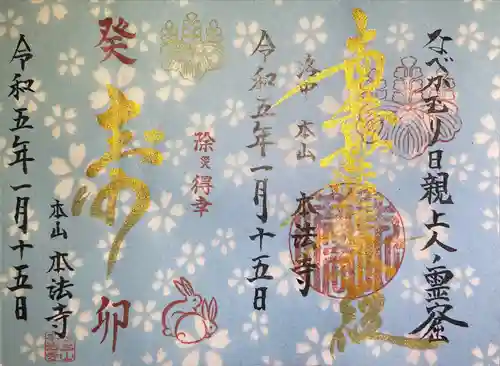 なべかむり日親上人ノ霊窟
南無妙法蓮華経
洛中 本山
本法寺
令和五年一月十五日
除災得幸
癸
寿
卯
本山 本法寺
令和五年一月十五日